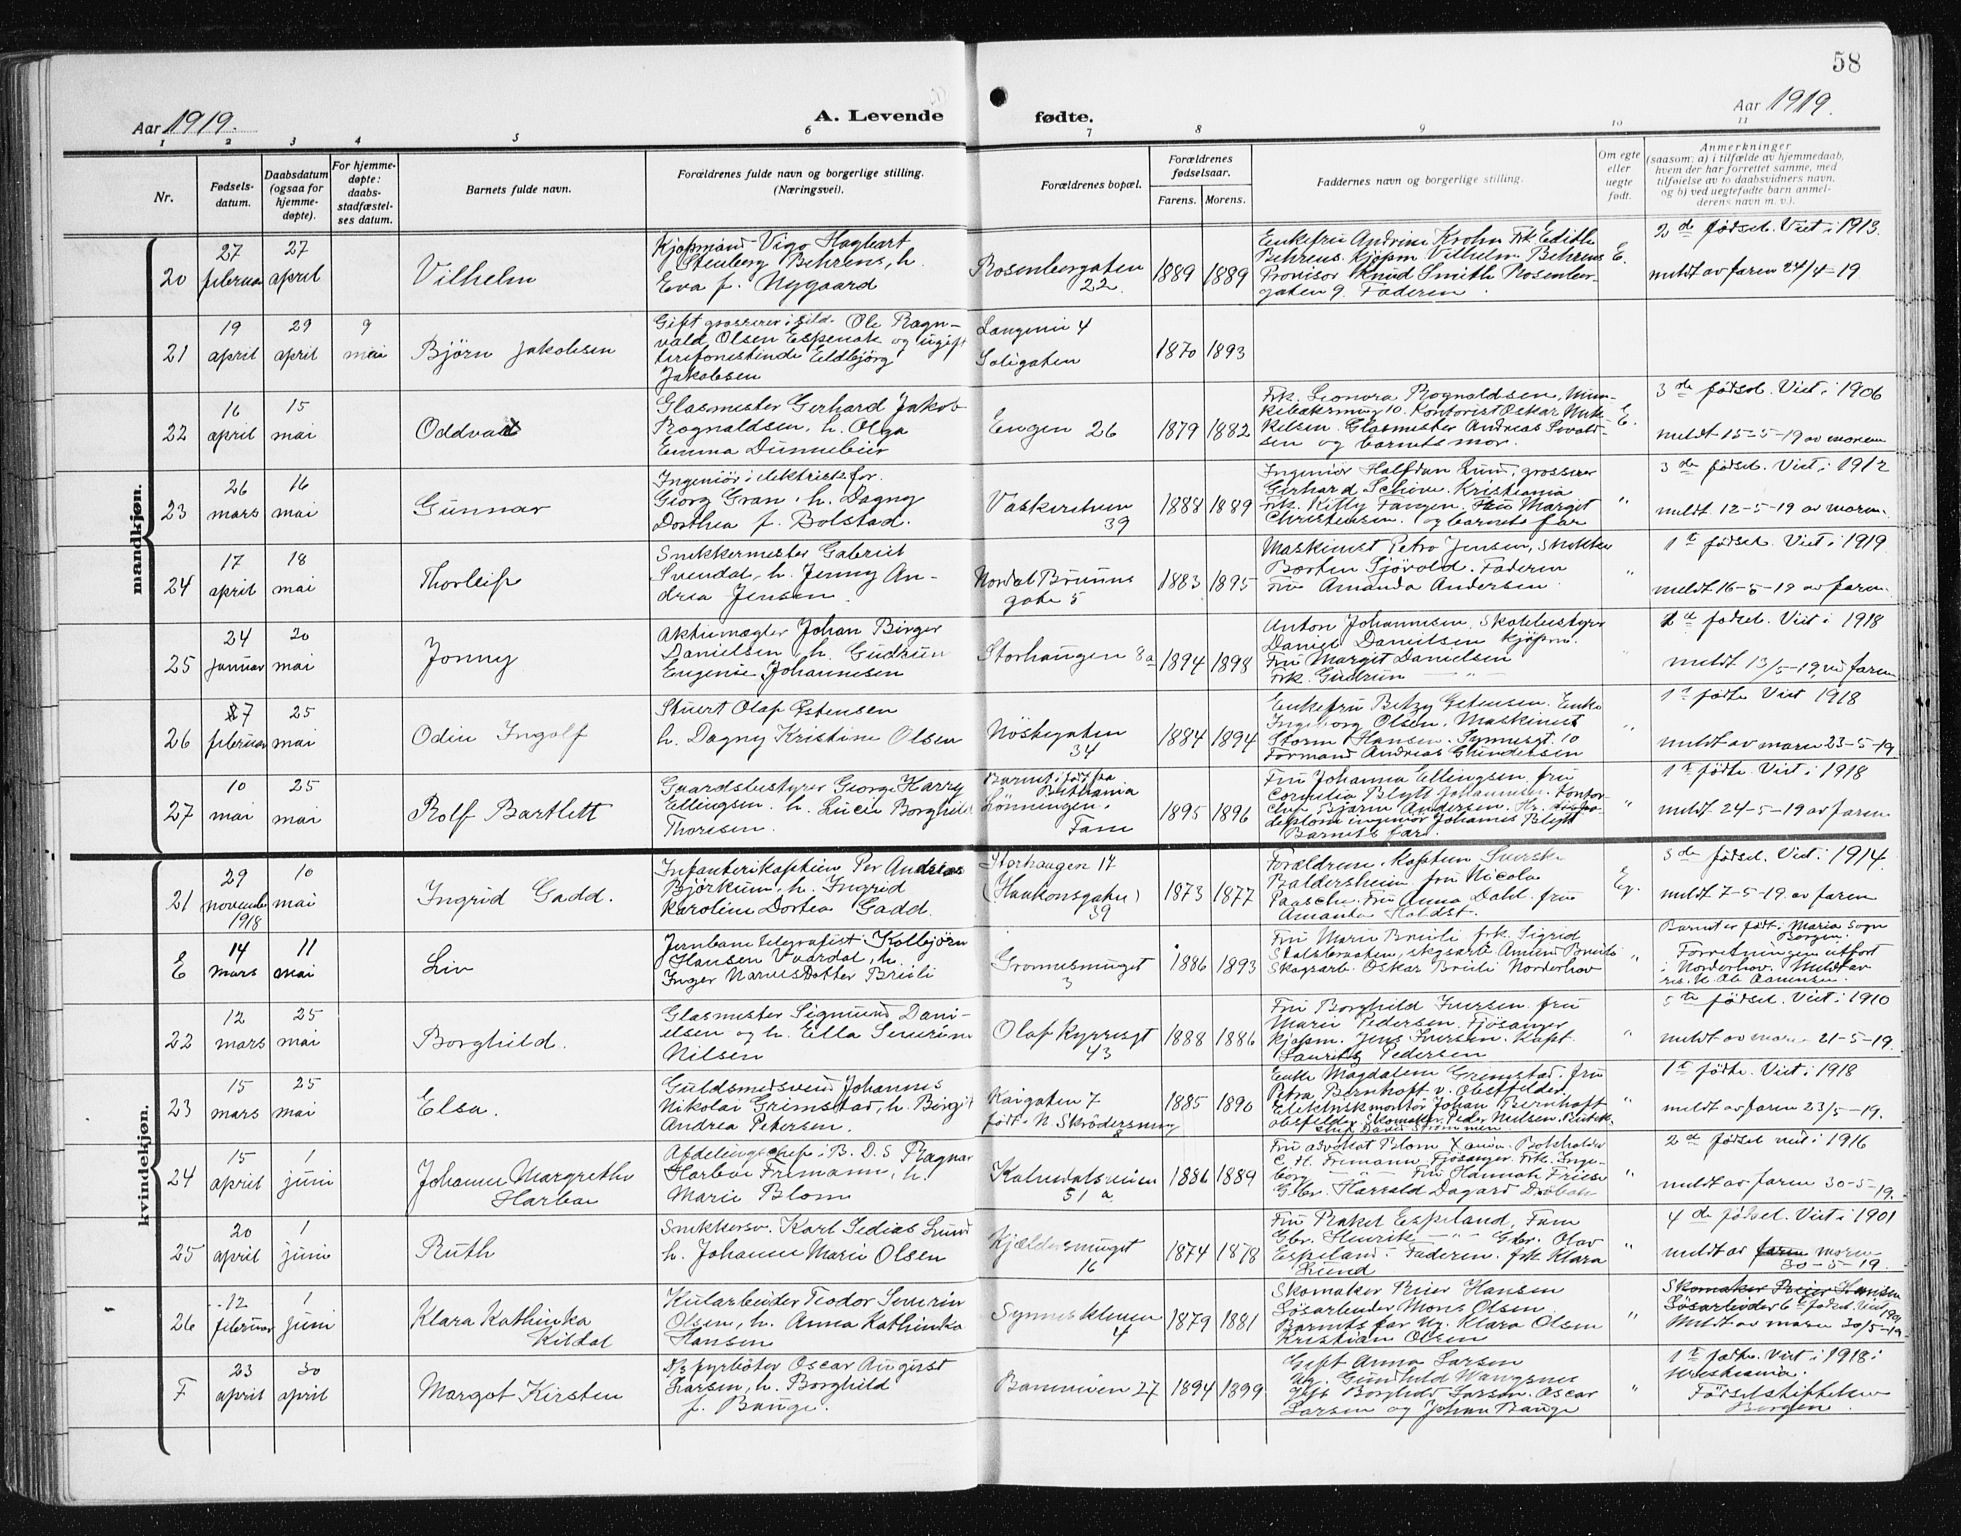 58
Aar 1919.
A. Levende fødte.
Aar 1919.
1 2 3 4 5 6 7 8 9 10 11
Nr.
Fødsels-
datum.
Daabsdatum
(ogsaa for
hjemme-
døpte).
For hjemme-
døpte:
daabs-
stadfæstel-
ses datum.
Barnets fulde navn.
Forældrenes fulde navn og borgerlige stilling.
(Næringsvei).
Forældrenes bopæl.
Forældrenes
fødselsaar.
Farens. Morens.
Faddernes navn og borgerlige stilling.
Om egte
eller
uegte
født.
Anmerkninger
(saasom: a) i tilfælde av hjemmedaab,
hvem der har forrettet samme, med
tilføielse av to daabsvidners navn,
og b) ved uegtefødte barn anmel-
derens navn m. v.).
mandkjøn.
20
27 februar
27 april
Vilhelm
Kjøpmand Vigo Hagbart
Stenberg Behrens, h.
Eva f. Nygaard
Rosenbergaten
22
1889 1889
Enkefru Andrine Krohn Frk. Edith
Behrens. Kjøpm Vilhelm Behrens
Provisor Knud Smith Rosenber-
gaten 9. Faderen.
E.
2 de fødsel. Viet i 1913.
meldt av faren 24/4-19
21
19 april
29 april
9 mai
Bjørn Jakobsen
Gift grosserer i sild Ole Ragn-
vald Olsen Espenak og ugift
Eldbjørg
Jakobsen
Langenii 4
1870 1893
22
16 april
15 mai
Oddvar
Glasmester Gerhard Jakob
Rognaldsen, h. Olga
Emma Dunnebier
Engen 26
1879 1882
Frk. Leonora Rognaldsen,
10. Kontorist Oskar
Glasmester Andreas
sen og barnets mor.
E.
3 de fødsel. Viet i 1906
meldt 15-5-19 av moren
23
26 mars
16 mai
Gunnar
Ingeniør i
Georg Gran, h. Dagny
Dorthea f. Bolstad.
Vaskerelven
39
1888 1889
Ingeniør Halfdan grosserer
Gerhard Schive, Kristiania
Frk. Kitty Fangen. Fru Margit
Christensen. og barnets far
"
3 de fødsel. Viet i 1912
meldt 12-5-19 av moren.
24
17 april
18 mai
Thorleif
Snekkermester Gabriel
Svendal, h. Jenny An-
drea Jensen.
Nordal Bruuns
gate 5
1883 1895
Maskinist Petro Jensen,
Sjøvold. Faderen
Fru Amanda Andersen
"
1 te fødsel. Viet i 1919
meldt 16-5-19 av faren
25
24 januar
20 mai
Jonny
Aktiemægler Johan Birger
Danielsen, h. Gudrun
Eugenie Johannesen
Storhaugen 8a
1894 1898
Anton Johannesen, Skolebestyrer
Daniel Danielsen kjøpm.
Fru Margit Danielsen
Frk. Gudrun — " —
"
fødsel. Viet i 1918
meldt 13/5-19, ved faren
26
27 februar
25 mai
Odin Ingolf
Stuert Olaf Østensen
h. Dagny Kristine Olsen
Nøstegaten
34
1884 1894
Enkefru Betzy Enke
Ingeborg Olsen. Maskinist
Storm Hansen. 10
Formand Andreas Gundersen
"
1 te fødte Viet 1918
meldt av moren 23-5-19.
27
10 mai
25 mai
Rolf Bartlett
Gaardsbestyrer George Harry
Ellingsen, h. Lucie Borghild
Thoresen.
Barnet født fra
Lønningen,
Fane
1895 1896
Fru Johanna Ellingsen, fru
Cornelia Blytt Johannesen. Kontor-
chef Bjarne Andersen. Hr.
diplom ingeniør Johannes Blytt
Barnets far.
"
1 te fødte. Viet i 1918
meldt 24-5-19 av faren
kvindekjøn.
21
29 november
1918
10 mai
Ingrid Gadd.
Infanterikaptein Per Andreas
Bjørkum, h. Ingrid
Karoline Dortea Gadd.
Storhaugen 17
(Haakonsgaten)
39
1873 1877
Forældrene. Kaptein Sverre
Baldersheim, fru Nicola
Paasche. Fru Anna Dahl, fru
Amanda Holdst.
Eg.
3 de fødsel. Viet i 1914.
meldt 7-5-19. av faren
E
14 mars
11 mai
Liv
Jernbane telegrafist Kolbjørn
Hansen Vaardal, h.
Inger Narvesdotter Brieli
Grønnesmuget
3
1886 1893
Fru Marie Brieli frk. Sigrid
Skogsarb. Oskar Brieli Norderhov
"
Barnet er født i Maria Sogn
Bergen.
Forretningen utført
i Norderhov. Meldt av
22
12 mars
25 mai
Borghild.
Glasmester Sigmund Dani-
elsen og h. Ella Severine
Nilsen
Olaf Kyrresgt
43
1888 1886
Fru Borghild Iversen. fru
Marie Pedersen. Fjøsanger
kjøpm. Jens Iversen. Kapt.
Lauritz Pedersen
"
5 te fødsel. Viet i 1910
meldt av moren 21-5-19.
23
15 mars
25 mai
Elsa.
Guldsmedsvend Johannes
Nikolai Grimstad, h. Birgit
Andrea Petersen.
Kaigaten 7
født i N. Skrödersmug
8
1885 1890
Enke Magdalene Grimstad. fru
Petra Bernhoft v. Obstfelder
Elektriskmontør Johan Bernhoft
Obstfelder. Skomaker Peder Nielsen.
"
1 te fødte. Viet i 1918
meldt av faren 23/5-19.
24
15 april
1 juni
Johanne Margrethe
Harboe
Afdelingschef i B. D. S Ragnar
Harboe Fremann, h.
Marie Blom
Kalvedalsveien
51 a
1886 1889
Fru advokat Blom Bokholder
C. H. Fremann, Fjøsanger. Frk. Inge-
borg Fru Hannah Friese
Gbr. Harald Dagard
"
2 de fødsel viet i 1916
meldt av faren 30-5-19.
25
20 april
1 juni
Ruth
Snekkersv. Karl Sedias Lund
h. Johanne Marie Olsen
Kjældersmuget
16
1874 1878
Fru Rakel Espeland, Fane
Gbr. Henrik — " — Gbr. Olav
Espeland. Faderen. frk Klara
Lund
"
4 de fødsel. Viet i 1901
meldt av faren moren
30-5-19.
26
12 februar
1 juni
Klara Kathinka
Kildal
Kularbeider Teodor Severin
Olsen, h. Anna Kathinka
Hansen
4
1879 1881
Skomaker Peier Hansen
Løsarbeider Mons Olsen
Barnets far Ug. Klara Olsen
Kristian Olsen
"
Skomaker Peier Hansen
Løsarbeider 6 te fødsel. Viet 1901
Meldt av moren 30/5-19
F
23 april
30 april
Margot Kirsten
fyrbøter Oscar August
Larsen, h. Borghild
f. Bauge.
Banneien 27
1894 1899
Gift Anna Larsen
Ug. Gunhild Wangsnes
Gift Borghild Larsen. Oscar
Larsen og Johan Bauge
"
1 te fødte. Viet i 1918 i
Kristiania.
Fødselstiftelsen
Bergen.